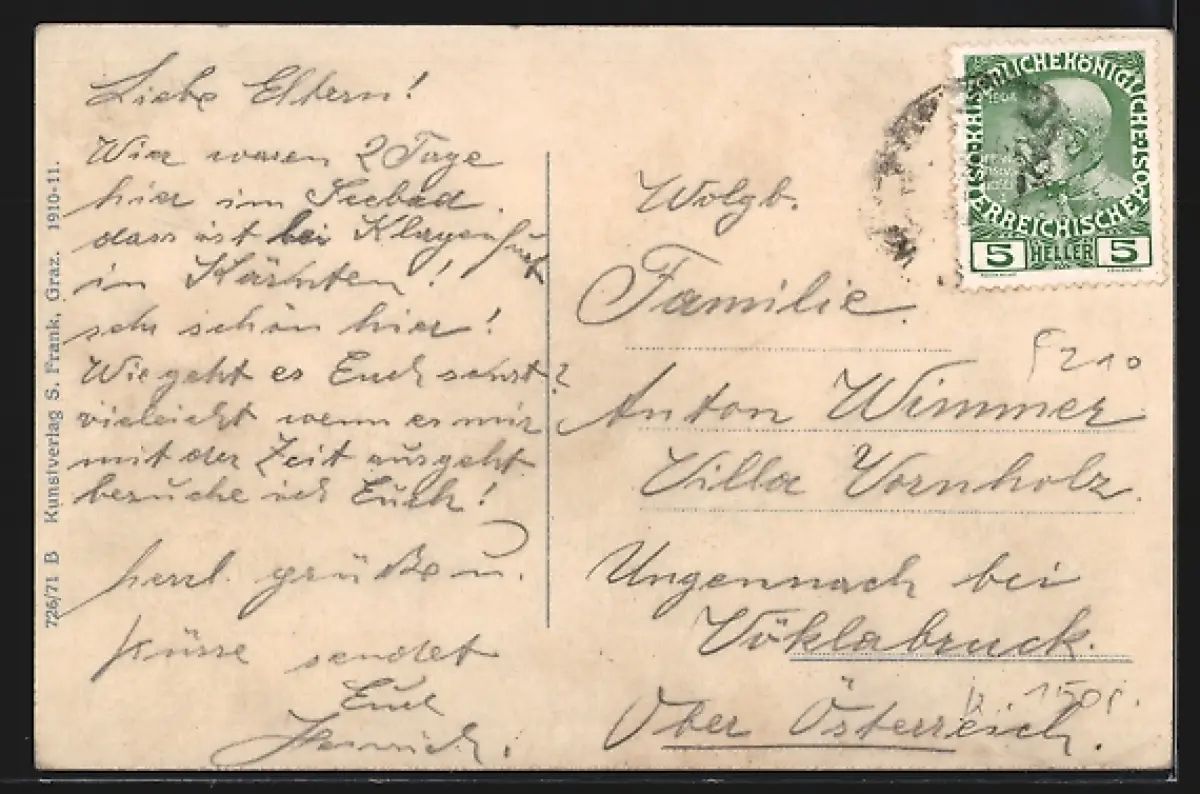 Liebe Eltern!
Wier waren 2 Tage
hier im Seebad.
dass ist bei Klagenfurt
in Kärnten!
sehr schön hier!
Wie geht es Euch sonst?
vieleicht wenn es mir
mit der Zeit ausgeht
besuche ich Euch!
herzl. grüße u.
Küsse sendet
Euch
Heinrich.
Wolgb.
Familie
Anton Wimmer
Villa Vornholz
Ungennach bei
Vöklabruck.
Ober Österreich.
5210
KAISERLICHE KÖNIGLICHE ÖSTERREICHISCHE POST
5 HELLER 5
726/71 B Kunstverlag S. Frank, Graz. 1910-11.